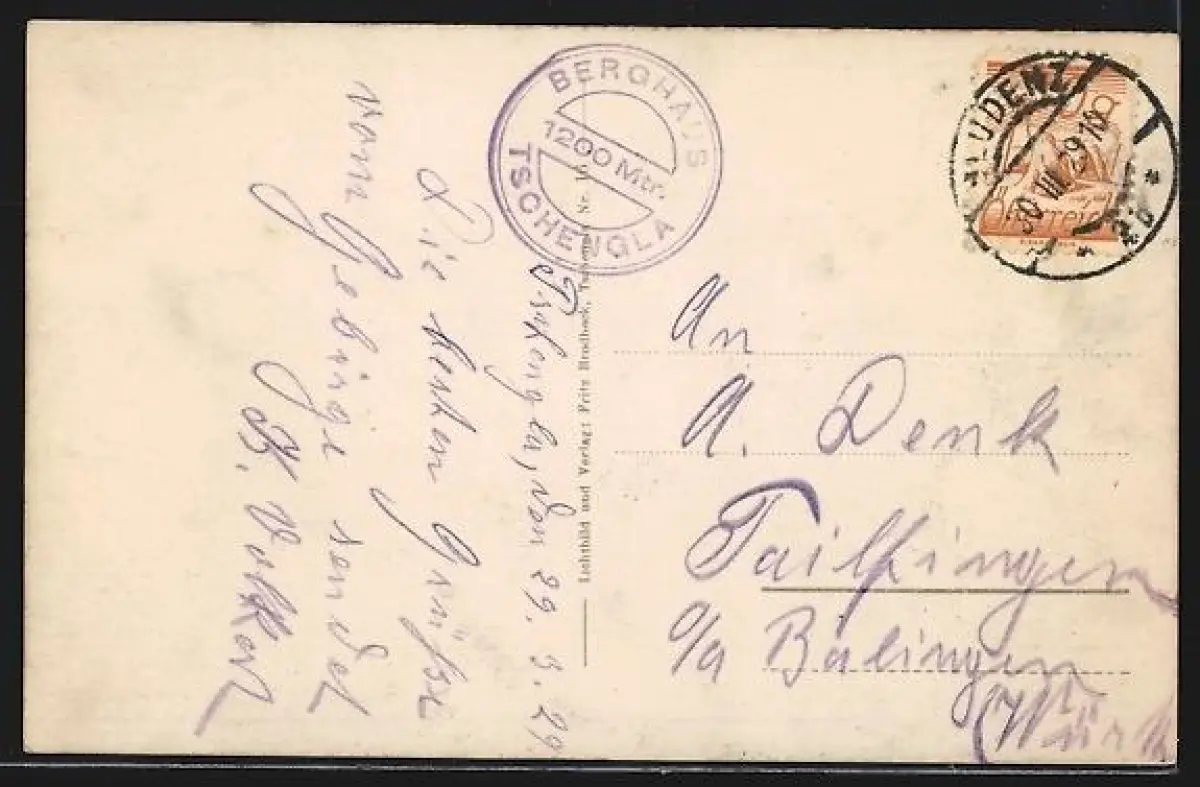 BERGHAUS
1200 Mtr.
TSCHENGLA
BLUDENZ
30 VIII 29 18
Österreich
Tschengla, den 29. 3. 29
Die besten Grüße
vom Gebirge sendet
Lichtbild und Verlag: Fritz Brodbeck,
Nr.
An
A. Denk
Tailfingen
o/a Balingen
(Württ